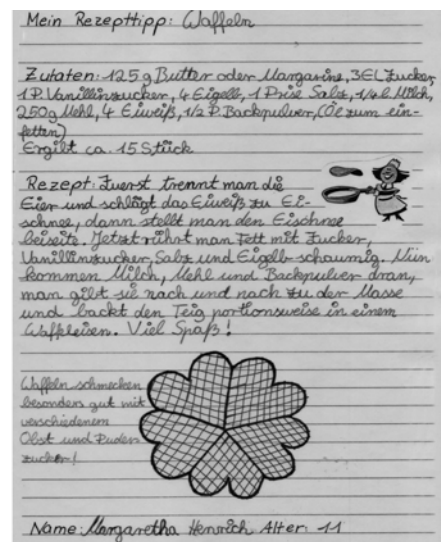 Mein Rezepttipp: Waffeln
Zutaten: 125 g Butter oder Margarine, 3 EL Zucker,
1 P. Vanillinzucker, 4 Eigelb, 1 Prise Salz, 1/4 l. Milch,
250g Mehl, 4 Eiweiß, 1/2 P. Backpulver, (Öl zum ein-
fetten)
Ergibt ca. 15 Stück
Rezept: Zuerst trennt man die
Eier und schlägt das Eiweiß zu Ei-
schnee, dann stellt man den Eischnee
beiseite. Jetzt rührt man Fett mit Zucker,
Vanillinzucker, Salz und Eigelb schaumig. Nun
kommen Milch, Mehl und Backpulver dran,
man gibt sie nach und nach zu der Masse
und backt den Teig portionsweise in einem
Waffeleisen. Viel Spaß!
Waffeln schmecken
besonders gut mit
verschiedenem
Obst und Puder-
zucker!
Name: Margaretha Henrich Alter: 11